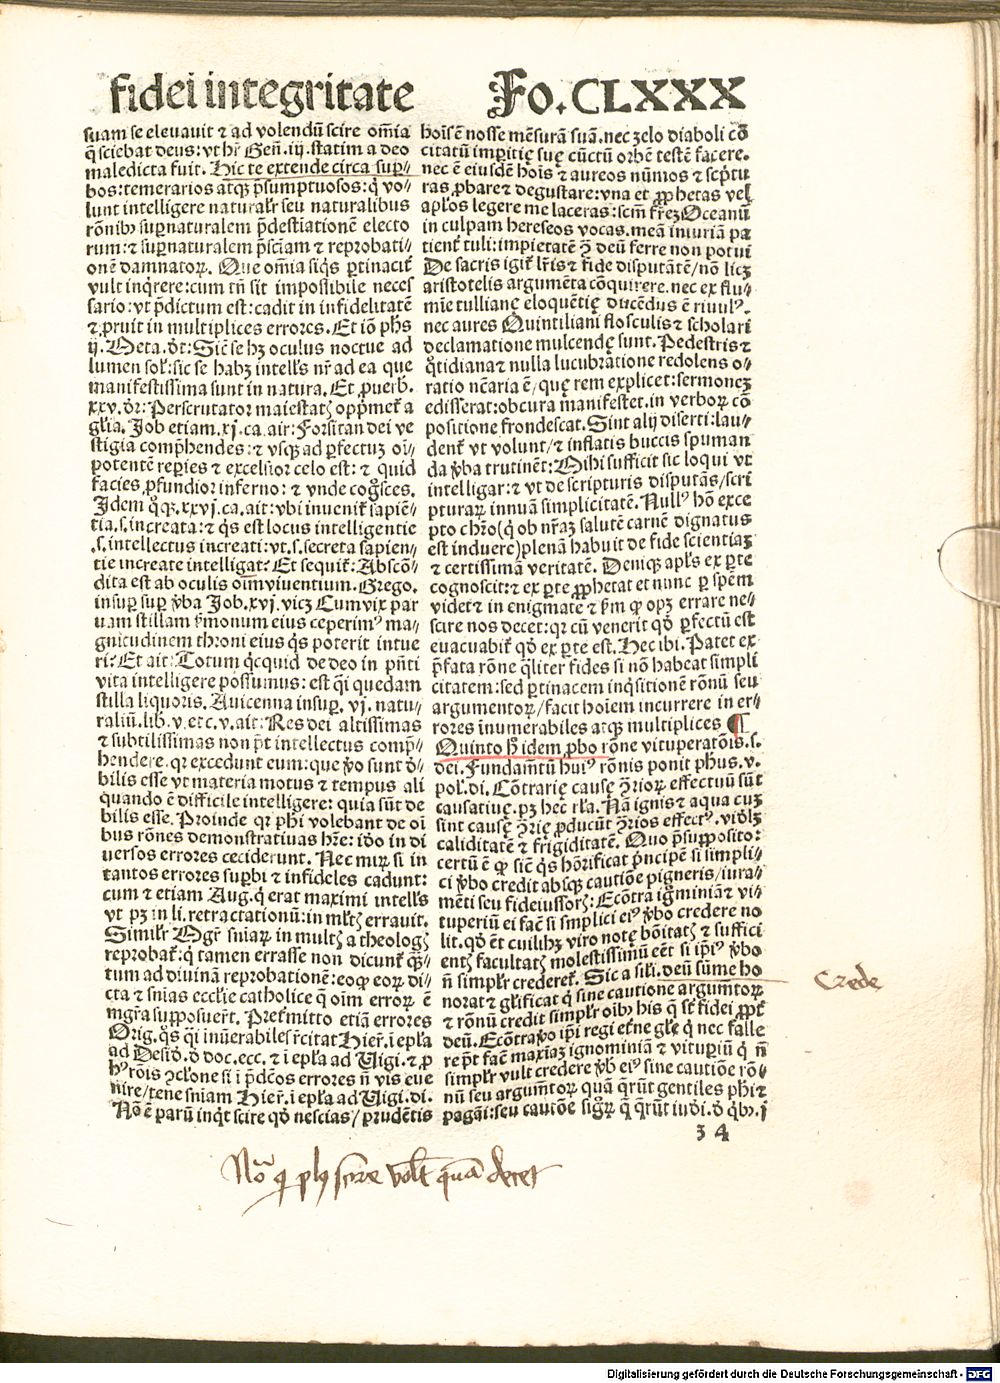 fidei integritate Fo. CLXXX
suam se eleuauit ⁊ ad volendū scire om̄ia
q̄ sciebat deus: vt hr̄ Gen̄. iij. statim a deo
maledicta fuit. Hic te extende circa sup⸗
bos: temerarios atqꝫ p̄sumptuosos: q̇ vo⸗
lunt intelligere naturalr̄ seu naturalibus
rōnib⁹ sup̄naturalem p̄destiationē electo
rum: ⁊ sup̄naturalem p̄sciam ⁊ reprobati⸗
onē damnatoꝝ. Que om̄ia siq̇s ꝑtinacit̄
vult inq̇rere: cum tn̄ sit impossibile neces
sario: vt p̄dictum est: cadit in infidelitatē
⁊ ꝓruit in multiplices errores. Et iō ph̄s
ij. Meta. dt̄: Sic̄ se hꝫ oculus noctue ad
lumen sol̄: sic se habꝫ intell̄s nr̄ ad ea que
manifestissima sunt in natura. Et ꝓuerb.
xxv. dr̄: Perscrutator maiestatꝭ opp̄met̄ a
gl̄ia. Job etiam. xj. ca. ait: Forsitan dei ve
stigia comp̄hendes: ⁊ vsqꝫ ad ꝑfectuꝫ oī⸗
potentē reperies ⁊ excelsior celo est: ⁊ quid
facies, ꝓfundior inferno: ⁊ vnde cog̊sces.
Idem q̊qꝫ. xxvj. ca. ait: vbi inuenit̄ sapiē⸗
tia. s. increata: ⁊ q̇s est locus intelligentie
.s. intellectus increati: vt. s. secreta sapien⸗
tie increate intelligat? Et sequit̄: Abscō⸗
dita est ab oculis oīm viuentium. Grego.
insup sup v̓ba Job. xvj. vicꝫ Cum vix par
uam stillam s̓monum eius ceperim⁹ ma⸗
gnitudinem throni eius q̇s poterit intue
ri? Et ait: Totum q̇cquid de deo in pn̄ti
vita intelligere possumus: est q̇i quedam
stilla liquoris. Auicenna insup. vj. natu⸗
raliū. lib. v. et c. v. ait: Res dei altissimas
⁊ subtilissimas non pn̄t intellectus comp̄⸗
hendere. qr excedunt eum: que v̓o sunt d̓⸗
bilis esse vt materia motus ⁊ tempus ali
quando ē difficile intelligere: quia sūt de
bilis esse. Proinde qr phi volebant de oī
bus rōnes demonstratiuas hr̄e: iō in di
uersos errores ceciderunt. Nec miꝝ si in
tantos errores supbi ⁊ infideles cadunt:
cum ⁊ etiam Aug. q̇ erat maximi intell̄s
vt pꝫ in li. retractationū: in ml̄tꝭ errauit.
Simil̄r Mgr̄ sn̄iaꝝ in multꝭ a theologꝭ
reprobat̄: q̇ tamen errasse non dicunt̄ qꝫ⸗
tum ad diuinam reprobationē: eoqꝫ eoꝝ di⸗
cta ⁊ sn̄ias eccl̄ie catholice q̇ oīm erroꝝ ē
mgr̄a supposuer̄t. Pret̄mitto etiā errores
Orig. q̊s q̇i inūerabiles r̓citat Hier̄. i epl̄a
ad Desid̓. d̓ doc. ecc. ⁊ i epl̄a ad Vigi. ⁊ ꝓ
h⁹ rōis ↄclōne si i p̄dc̄os errores n̄ vis eue
nire/ tene sn̄iam Hier̄. i epl̄a ad Vigi. di.
Nō ē parū inq̇t scire qd̓ nescias/ prudētis
hoīs ē nosse mēsurā suā. nec zelo diaboli cō
citatū impitię suę cūctū orbē testē facere.
nec ē eiusdē hoīs ⁊ aureos nūmos ⁊ sc̄ptu
ras ꝓbare ⁊ degustare: vna et ꝓphetas vel
apl̄os legere me laceras: scm̄ fr̄eꝫ Oceanū
in culpam hereseos vocas. meā iniuriā pa
tient̄ tuli: impietatē ꝯ̄ deū ferre non potui
De sacris igit̄ lr̄is ⁊ fide disputātē/ nō licꝫ
aristotelis argumēta cōquirere. nec ex flu⸗
mīe tullianę eloquētię ducēdus ē riuul⁹.
nec aures Quintiliani flosculis ⁊ scholari
declamatione mulcendę sunt. Pedestris ⁊
q̊tidiana ⁊ nulla lucubratione redolens o⸗
ratio nēaria ē/ quę rem explicet: sermoneꝫ
edisserat: obscura manifestet. in verboꝝ cō
positione frondescat. Sint alij diserti: lau⸗
dent̄ vt volunt/ ⁊ inflatis buccis spuman
da v̓ba trutinēt: Mihi sufficit sic loqui vt
intelligar: ⁊ vt de scripturis disputās/ scri
pturaꝝ innuām simplicitatē. Null⁹ hō exce
pto chr̄o (q̇ ob nr̄aꝫ salutē carnē dignatus
est induere) plenā habuit de fide scientiaꝫ
⁊ certissimā veritatē. Deniqꝫ apl̄s ex ꝑte
cognoscit: ⁊ ex ꝑte ꝓphetat et nunc ꝑ spēm
videt ⁊ in enigmate ⁊ s̓m qd̓ opꝫ errare ne⸗
scire nos decet: qr cū venerit qd̓ ꝑfectū est
euacuabit̄ qd̓ ex ꝑte est. Hec ibi. Patet ex
p̄fata rōne q̄liter fides si nō habeat simpli
citatem: sed ꝑtinacem inq̇sitionē rōnū seu
argumentoꝝ/ facit hoīem incurrere in er⸗
rores in̄umerabiles atqꝫ multiplices ¶
Quinto h̓ idem ꝓbo rōne vituperatōis. s.
dei. Fundam̄tū hui⁹ rōnis ponit ph̄us. v.
pol̄. di. Cōtrarię causę ꝯ̄rioꝝ effectuū sūt
causatiuę. pꝫ hec rl̄a. Nā ignis ⁊ aqua cuꝫ
sint causę ꝯ̄rię ꝓducūt ꝯ̄rios effect⁹. vid̓lꝫ
caliditatē ⁊ frigiditatē. Quo p̄supposito:
certū ē qd̓ sic̄ q̇s hōrificat p̄ncipē si simpli⸗
ci v̓bo credit absqꝫ cautiōe pigneris/ iura⸗
mēti seu fideiussorꝭ: Ecōtra ig̊miniā ⁊ vi⸗
tuperiū ei fac̄ si simplici ei⁹ v̓bo credere no
lit. qd̓ et̄ cuilihꝫ viro notę bōitatꝭ ⁊ suffici
entꝭ facultatꝭ molestissimū eēt si ip̄i⁹ v̓bo
n̄ simpl̄r crederet̄. Sic a sil̄i. deū sūme ho
norat ⁊ gl̄ificat q̇ sine cautione argum̄toꝝ
⁊ rōnū credit simpl̄r oīb⁹ his q̄ st̄ fidei ꝓpt̄
deū. Ecōtra v̓o ip̄i regi et̄ne gl̄e q̇ nec falle
re pt̄ fac̄ maximā ignominiā ⁊ vitupiū q̇ n̄
simpl̄r vult credere v̓b̓ ei⁹ sine cautiōe rō⸗
nū seu argum̄toꝝ quā q̄rūt gentiles phi ⁊
pagāi: seu cautōe signoꝝ q̄ q̄rūt iudi. d̓ q̇b⁹. j
z 4
Crede
Nō q̇ plꝰ scire volt̄ quā decet
Digitalisierung gefördert durch die Deutsche Forschungsgemeinschaft - DFG